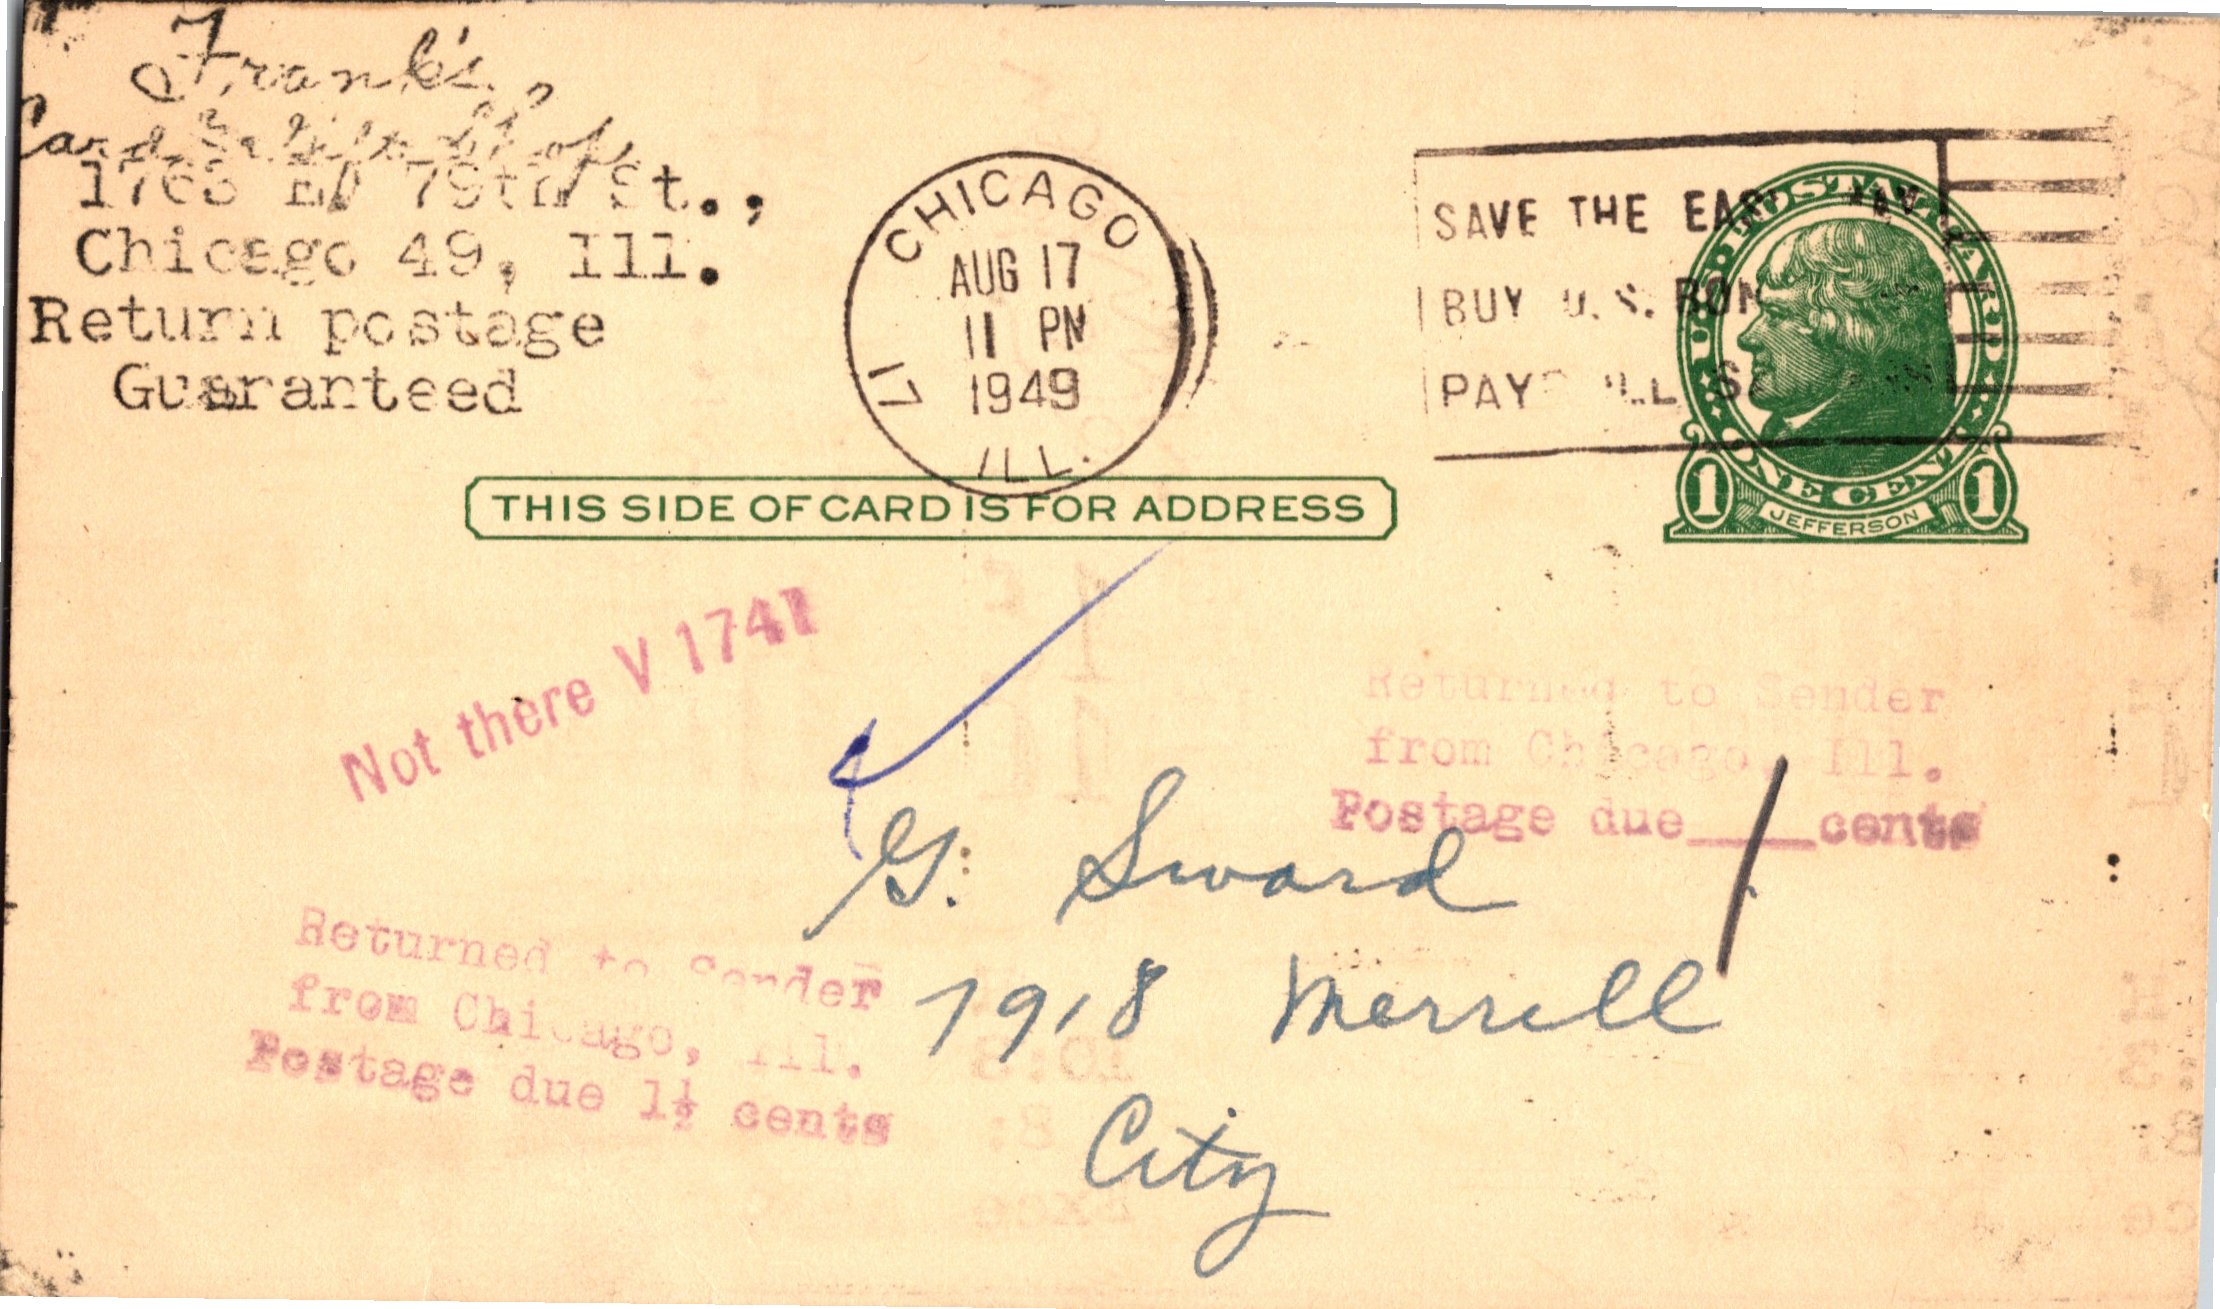 Frank's
Card & Gift Shop
1763 E. 79th St.,
Chicago 49, Ill.
Return postage
Guaranteed
CHICAGO
AUG 17
11 PM
1949
ILL.
17
SAVE THE EASY WAY
BUY U.S. BONDS
PAYROLL SAVINGS
U.S. POSTAL CARD
ONE CENT
1 JEFFERSON 1
THIS SIDE OF CARD IS FOR ADDRESS
Not there V 1741
Returned to Sender
from Chicago, Ill.
Postage due 1 cents
G. Sward
7918 Merrill
City
Returned to Sender
from Chicago, Ill.
Postage due 1½ cents